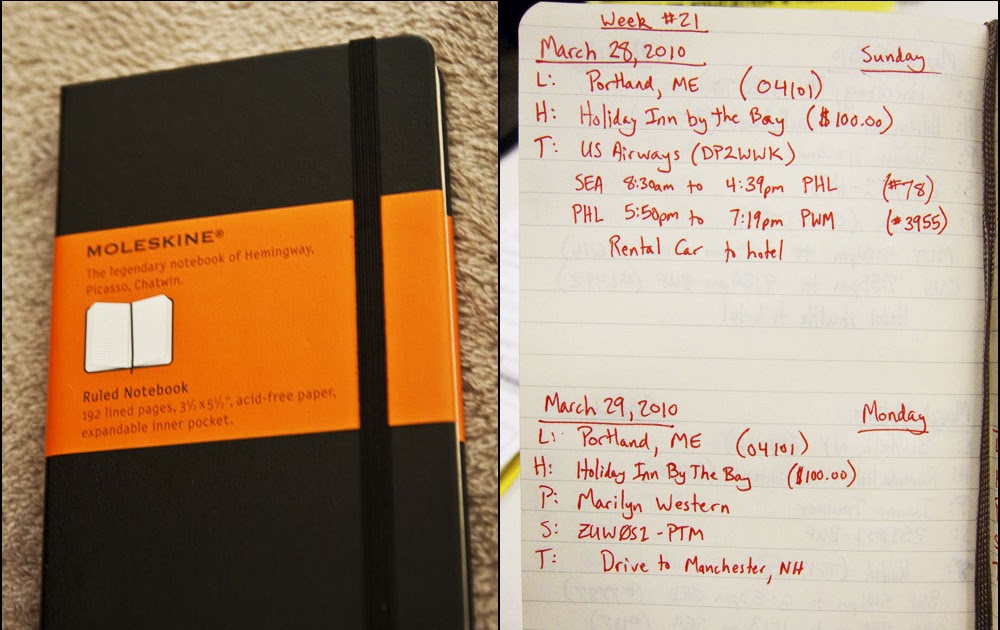 MOLESKINE®
The legendary notebook of Hemingway,
Picasso, Chatwin.
Ruled Notebook
192 lined pages, 3½ x 5½", acid-free paper,
expandable inner pocket.
Week #21
March 28, 2010 Sunday
L: Portland, ME (04101)
H: Holiday Inn by the Bay ($100.00)
T: US Airways (DP2WWK)
SEA 8:30am to 4:39pm PHL (#78)
PHL 5:50pm to 7:19pm PWM (#3955)
Rental Car to hotel
March 29, 2010 Monday
L: Portland, ME (04101)
H: Holiday Inn By The Bay ($100.00)
P: Marilyn Western
S: ZUWØS2-PTM
T: Drive to Manchester, NH